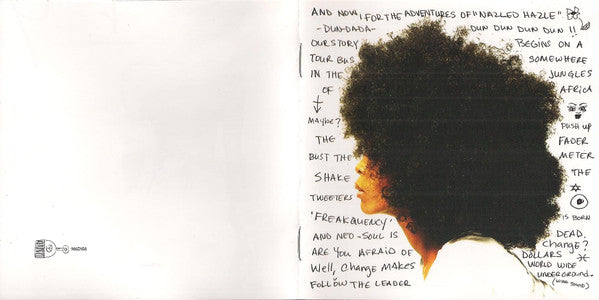 AND NOW, FOR THE ADVENTURES OF "NAZLED HAZLE"
-DUN-DADA- DUN DUN DUN DUN !!
OUR STORY BEGINS ON A
TOUR BUS SOMEWHERE
IN THE JUNGLES
OF AFRICA
MAYBE?
PUSH UP
THE FADER
BUST THE METER
SHAKE THE
TWEETERS
'FREAKQUENCY' IS BORN
AND NEO-SOUL IS DEAD.
ARE YOU AFRAID OF Change?
Well, Change MAKES DOLLARS
FOLLOW THE LEADER WORLD WIDE
UNDERGROUND.